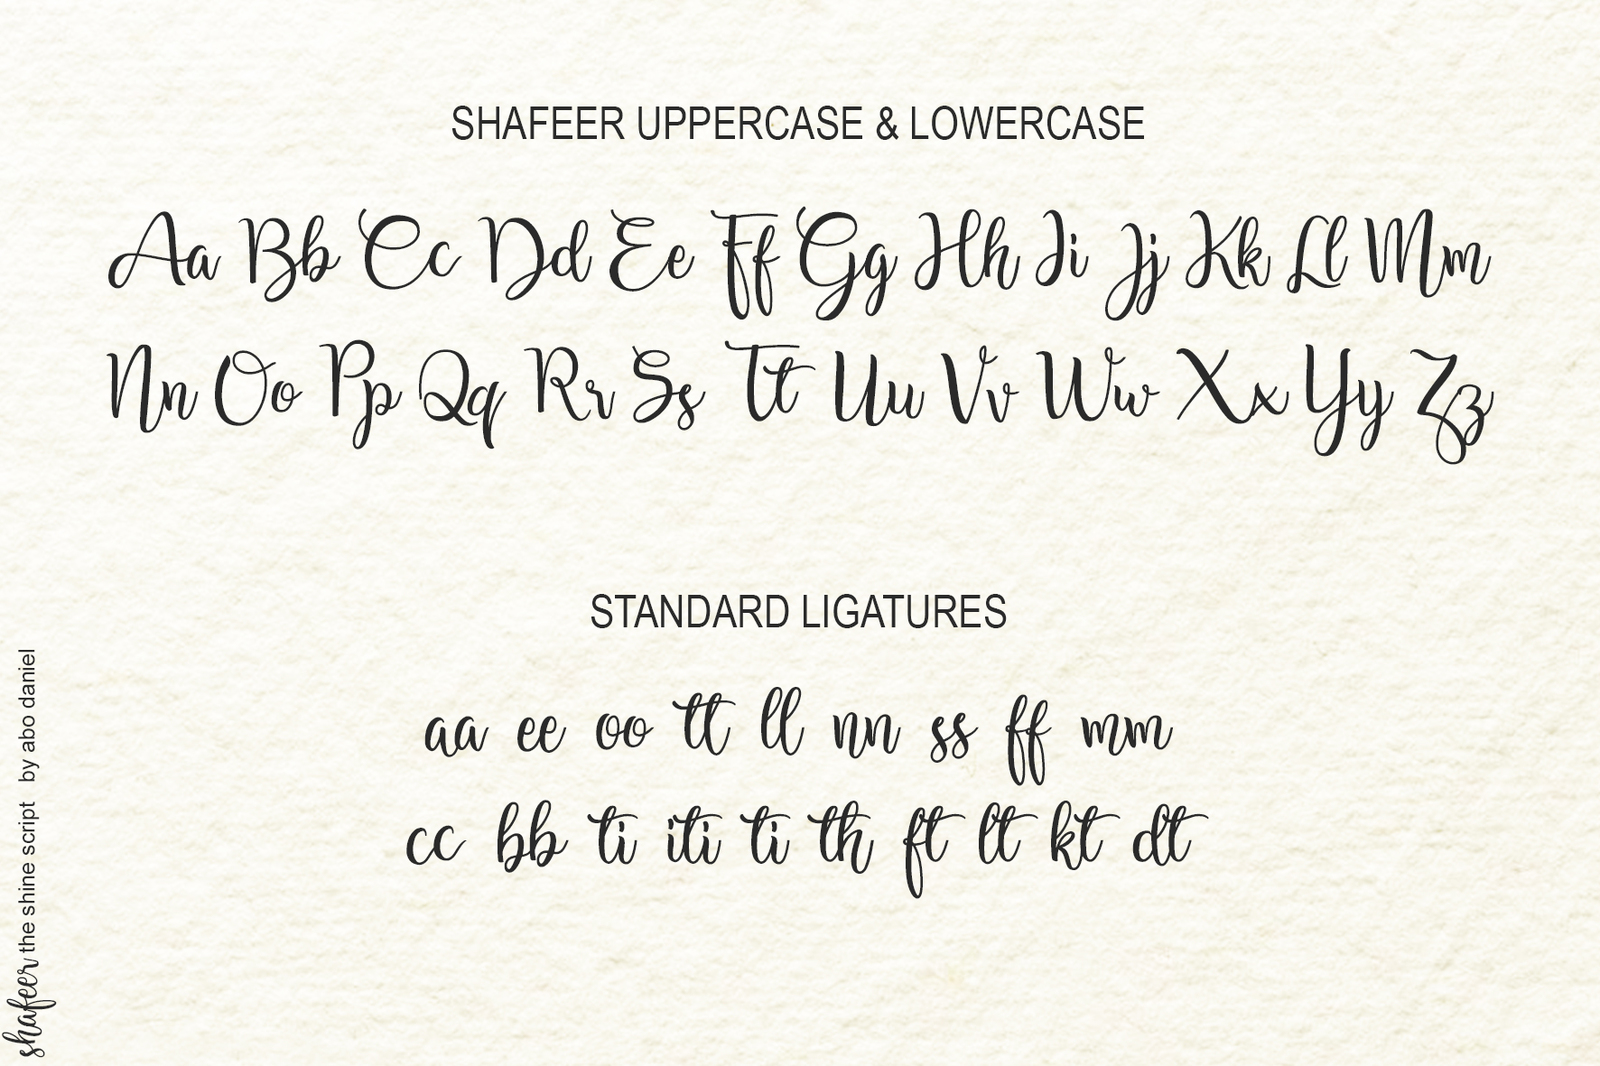 SHAFEER UPPERCASE & LOWERCASE
Aa Bb Cc Dd Ee Ff Gg Hh Ii Jj Kk Ll Mm
Nn Oo Pp Qq Rr Ss Tt Uu Vv Ww Xx Yy Zz
STANDARD LIGATURES
aa ee oo tt ll nn ss ff mm
cc bb ti iti ti th ft lt kt dt
shafeer the shine script by abo daniel